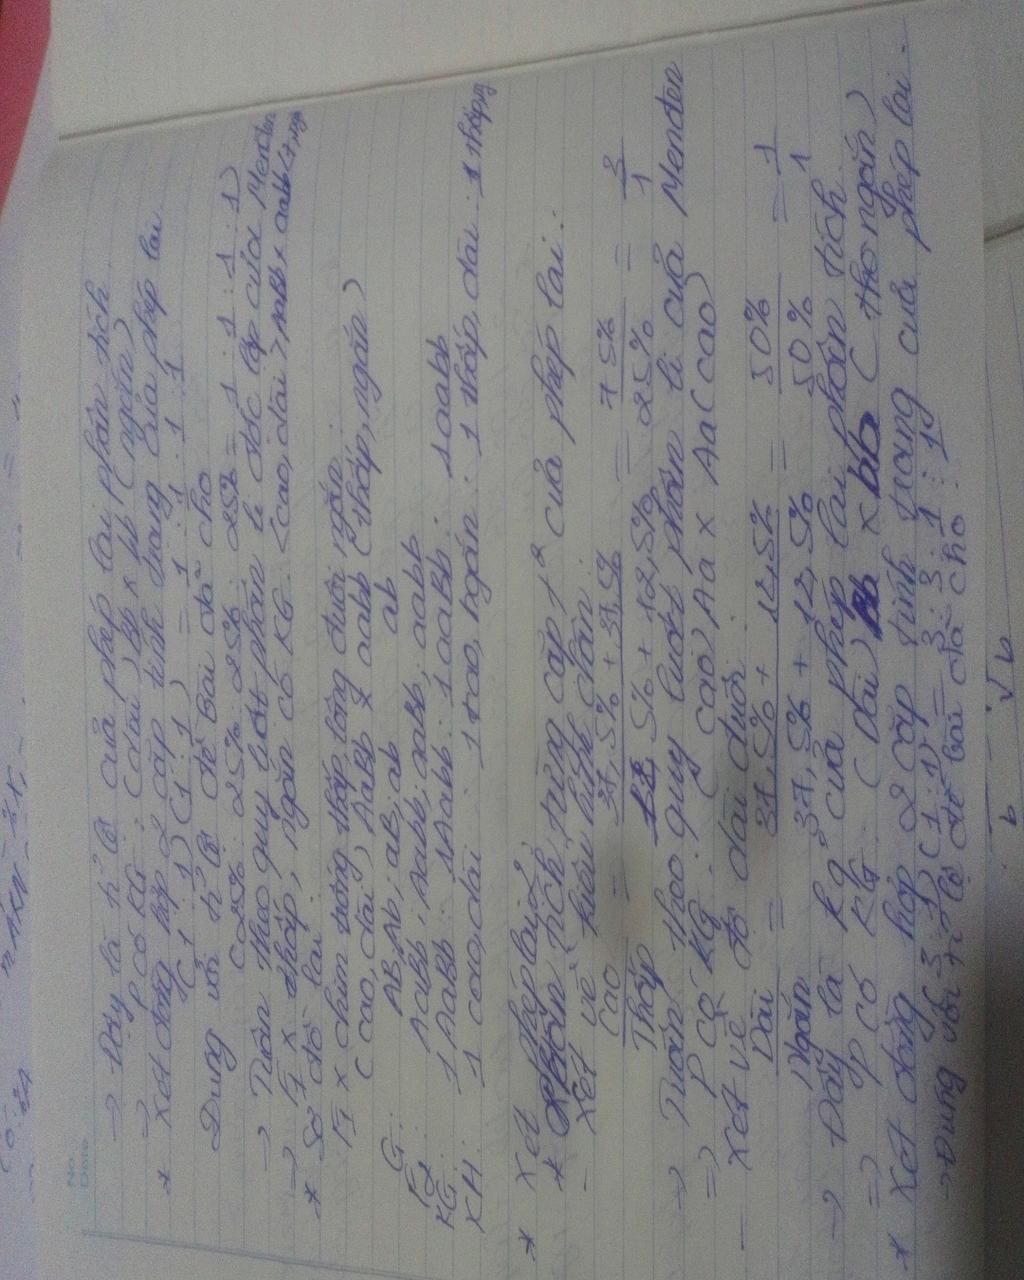 → Đây là tỉ lệ của phép lai phân tích
⇒ P có KG: (dài) Bb x bb (ngắn)
* Xét chung hợp 2 cặp tính trạng của phép lai
(1 : 1) (1 : 1) = 1 : 1 : 1 : 1
Đúng với tỉ lệ đề bài đã cho
(25% : 25% : 25% : 25% = 1 : 1 : 1 : 1)
→ Tuân theo quy luật phân li độc lập của Menđen
→ F1 x thấp, ngắn có KG: (cao, dài) AaBb x aabb
* Sơ đồ lai
F1 x chim lông thấp, lông đuôi ngắn
(cao, dài) AaBb x aabb (thấp, ngắn)
G: AB; Ab; aB; ab ab
AaBb; Aabb; aaBb; aabb
KG: 1AaBb : 1Aabb : 1aaBb : 1aabb
KH: 1 cao, dài : 1 cao, ngắn : 1 thấp, dài : 1 thấp,
* Xét phép lai 2:
* Phân tích từng cặp t² của phép lai:
- Xét về kiểu hình chân:
Cao = 37,5% + 37,5% = 75% = 3
Thấp 12,5% + 12,5% 25% 1
→ Tuân theo quy luật phân li của Menđen
⇒ P có KG: (cao) Aa x Aa (cao)
- Xét về độ dài đuôi
Dài = 37,5% + 12,5% = 50% = 1
Ngắn 37,5% + 12,5% 50% 1
→ Đây là kq của phép lai phân tích
⇒ P có KG: (Dài) Bb x bb (ngắn)
* Xét chung hợp 2 cặp tính trạng của phép lai.
(3 : 1) (1 : 1) = 3 : 3 : 1 : 1
→ Đúng với tỉ lệ đề bài đã cho